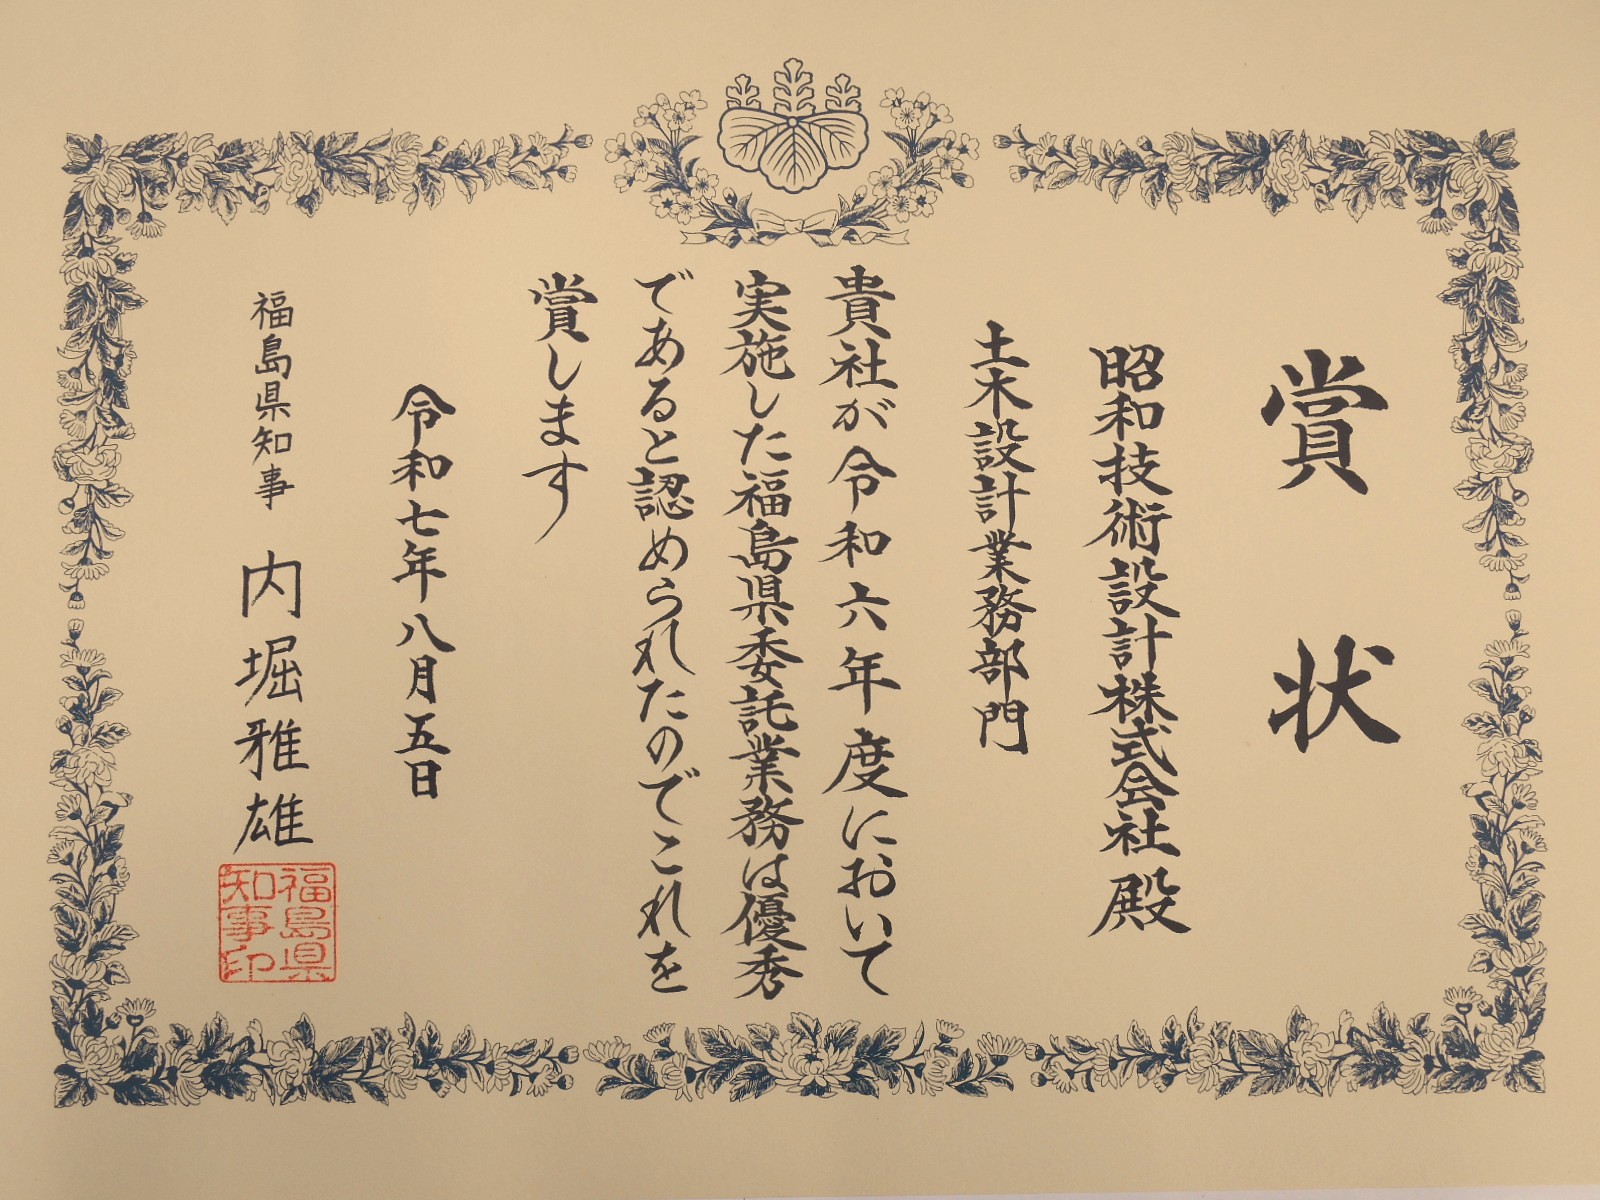 賞状
昭和技術設計株式会社 殿
土木設計業務部門
貴社が令和六年度において
実施した福島県委託業務は優秀
であると認められたのでこれを
賞します
令和七年八月五日
福島県知事 内堀雅雄
福島県
知事印